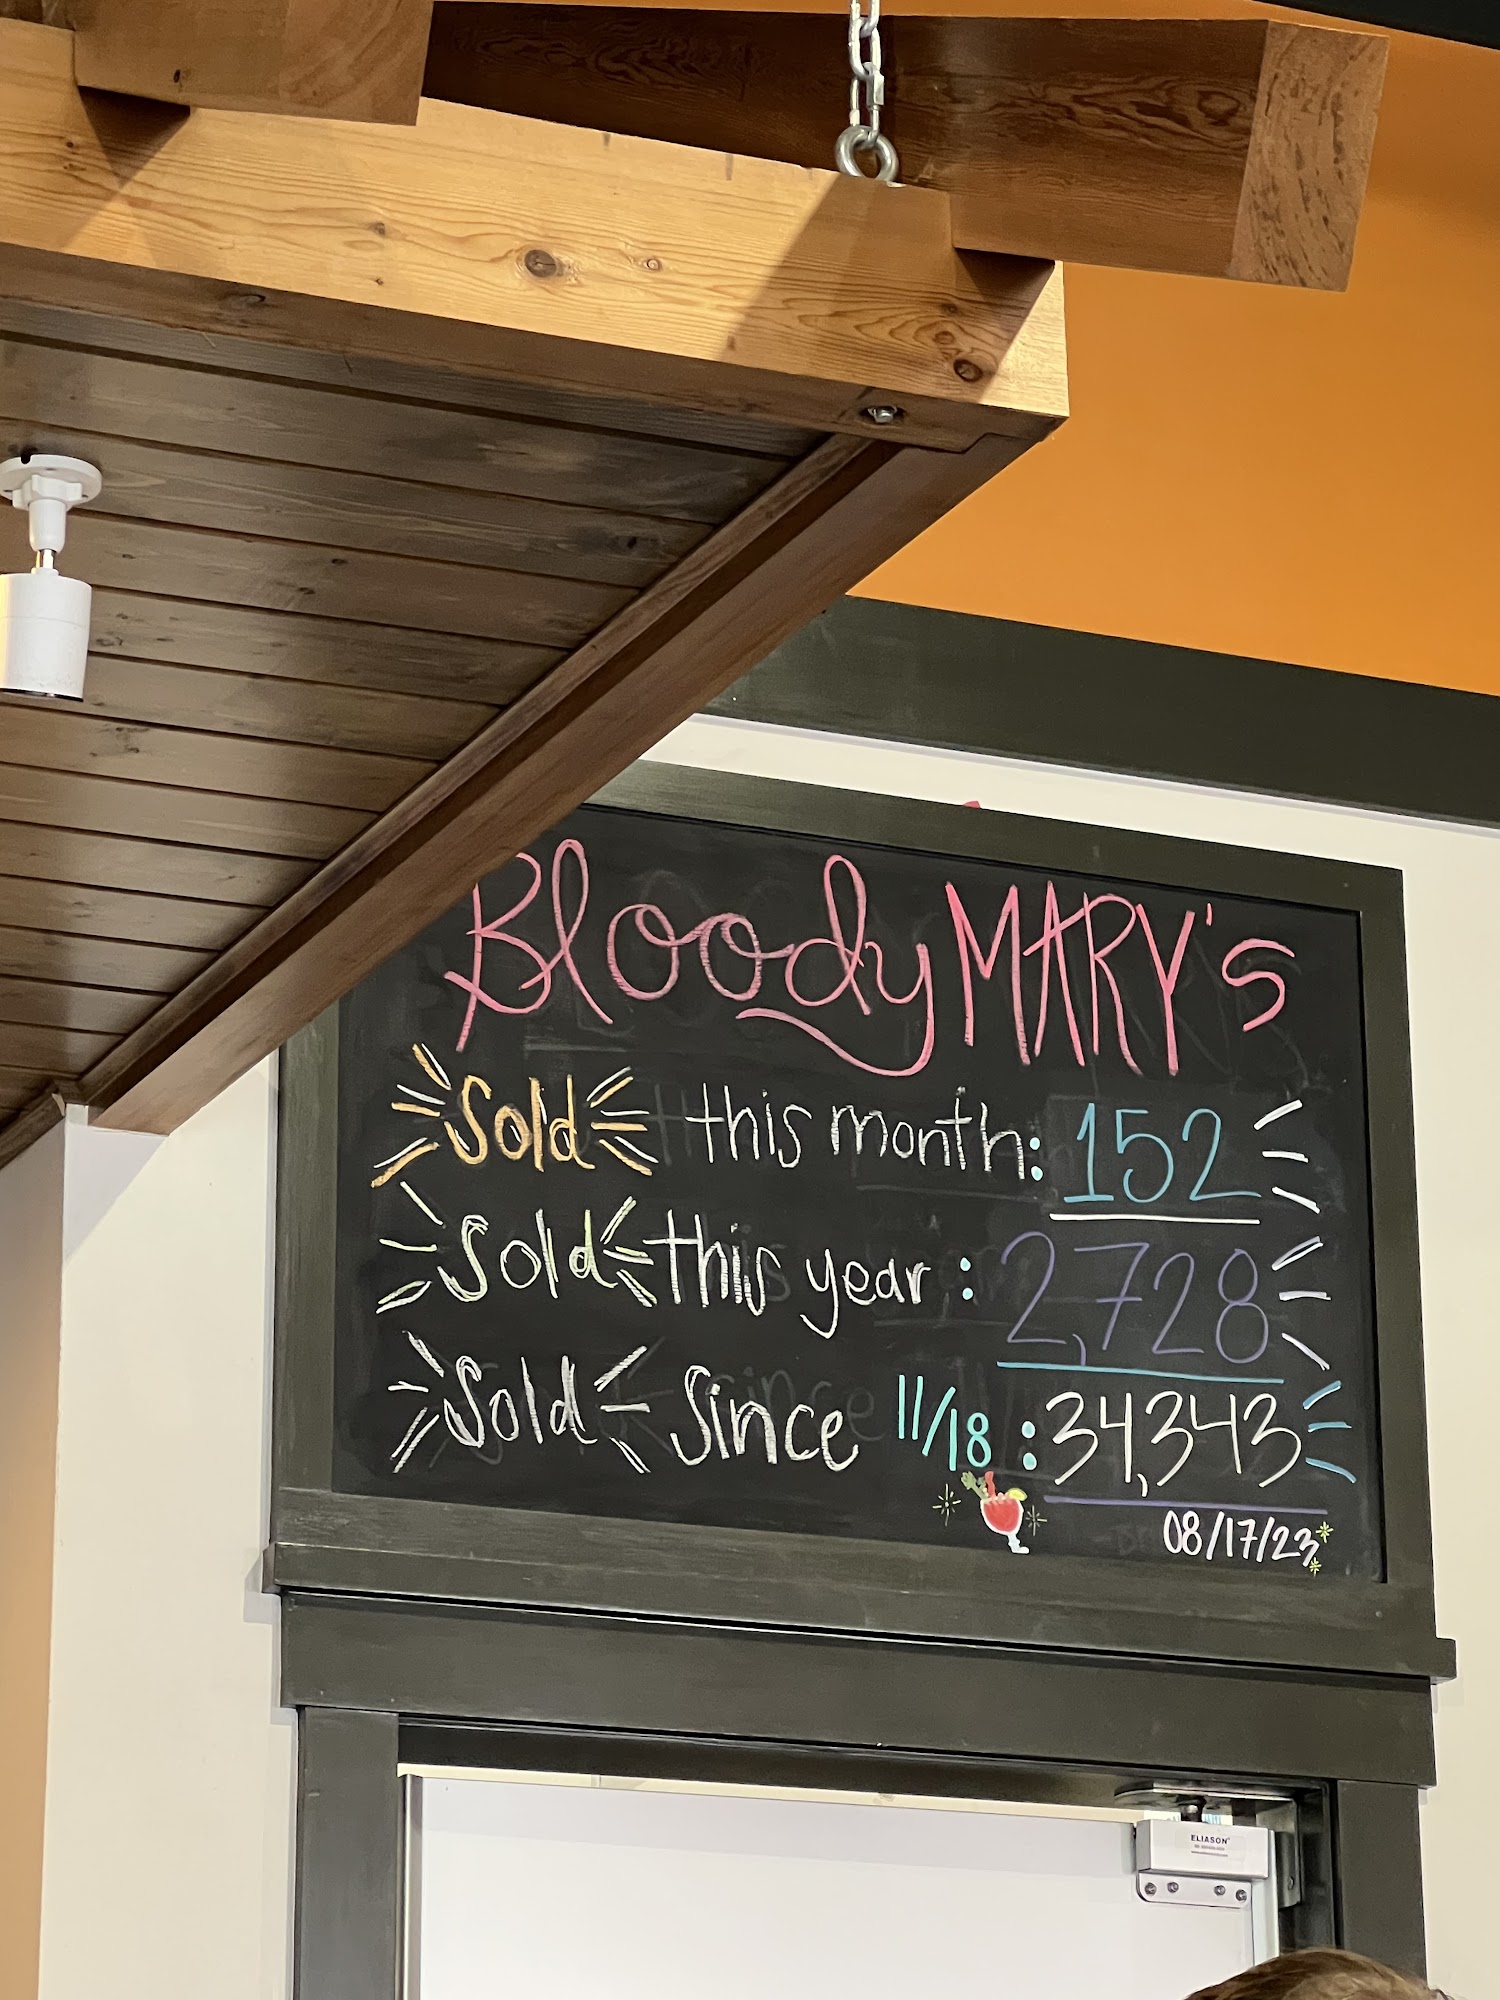 Bloody MARY's
Sold this month: 152
Sold this year: 2,728
Sold since 11/18: 34,343
08/17/23
ELIASON